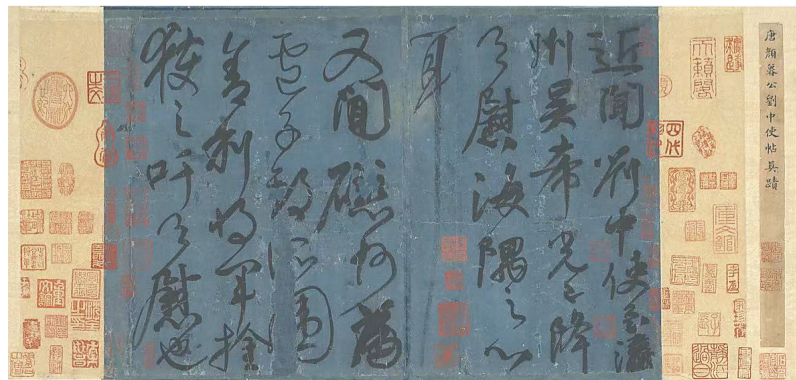 唐顏魯公劉中使帖真蹟
天籟閣
近聞劉中使至瀛
州吳希光已降
足慰海隅之心
耳
又聞磁州為
盧子期所圍
舍利將軍擒
獲之吁足慰也